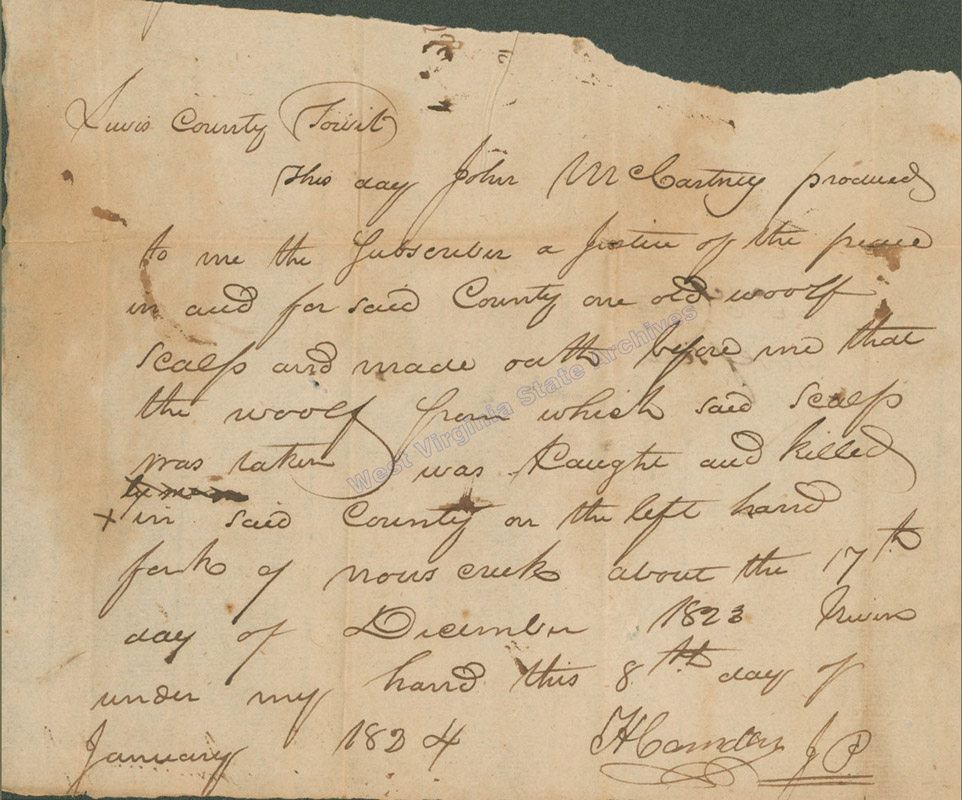 Lewis County Towit
This day John McCartney produced
to me the Subscriber a Justice of the peace
in and for said County one old woolf
scalp and made oath before me that
the woolf from which said scalp
was taken was Caught and killed
+ in said County on the left hand
fork of creek about the 17th
day of December 1823 Given
under my hand this 8th day of
January 1824 JP
West Virginia State Archives